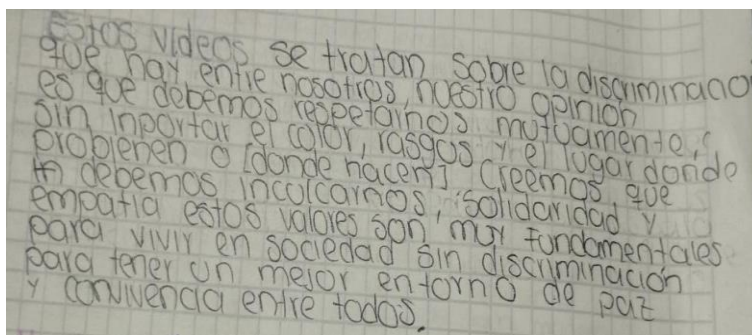 Estos videos se tratan sobre la discriminacio
que hay entre nosotros, nuestro opinion
es que debemos respetarnos mutuamente,
sin inportar el color, rasgos y el lugar donde
probienen o [donde nacen] Creemos que
debemos inculcarnos, solidaridad y
empatia estos valores son, muy fundamentales
para vivir en sociedad sin discriminación
para tener un mejor entorno de paz
y convivencia entre todos.